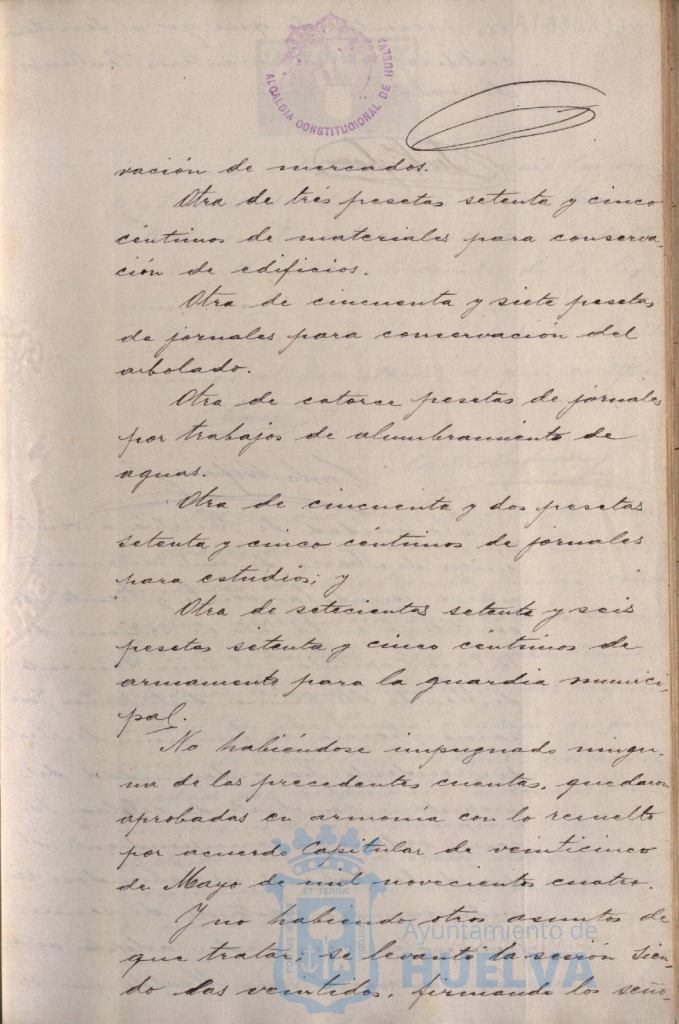 ALCALDIA CONSTITUCIONAL DE HUELVA
vación de mercados.
Otra de tres pesetas setenta y cinco
céntimos de materiales para conserva-
ción de edificios.
Otra de cincuenta y siete pesetas
de jornales para conservación del
arbolado.
Otra de catorce pesetas de jornales
por trabajos de alumbramiento de
aguas.
Otra de cincuenta y dos pesetas
setenta y cinco céntimos de jornales
para estudios; y
Otra de setecientas setenta y seis
pesetas setenta y cinco céntimos de
armamento para la guardia munici-
pal.
No habiéndose impugnado ningu-
na de las precedentes cuentas, quedaron
aprobadas en armonía con lo resuelto
por acuerdo Capitular de veinticinco
de Mayo de mil novecientos cuatro.
Y no habiendo otros asuntos de
que tratar, se levantó la sesión sien-
do las veintidos, firmando los seño-
Ayuntamiento de
HUELVA